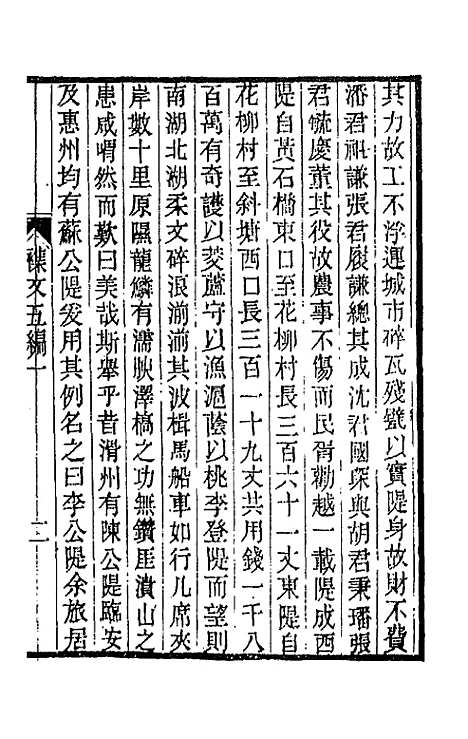 其力故工不浮運城市碎瓦殘甓以實隄身故財不費
潘君祖謙張君履謙總其成沈君國琛與胡君秉璠張
君毓慶董其役故農事不傷而民胥勸越一載隄成西
隄自黃石橋東口至花柳村長三百六十一丈東隄自
花柳村至斜塘西口長三百一十九丈共用錢一千八
百萬有奇護以茭蘆守以漁滬蔭以桃李登隄而望則
南湖北湖柔文碎浪湔湔其波楫馬船車如行几席夾
岸數十里原隰龍鱗有濡映澤槁之功無鑽厓潰山之
患咸喟然而歎曰美哉斯舉乎昔滑州有陳公隄臨安
及惠州均有蘇公隄爰用其例名之曰李公隄余旅居
襍文五編一
十二